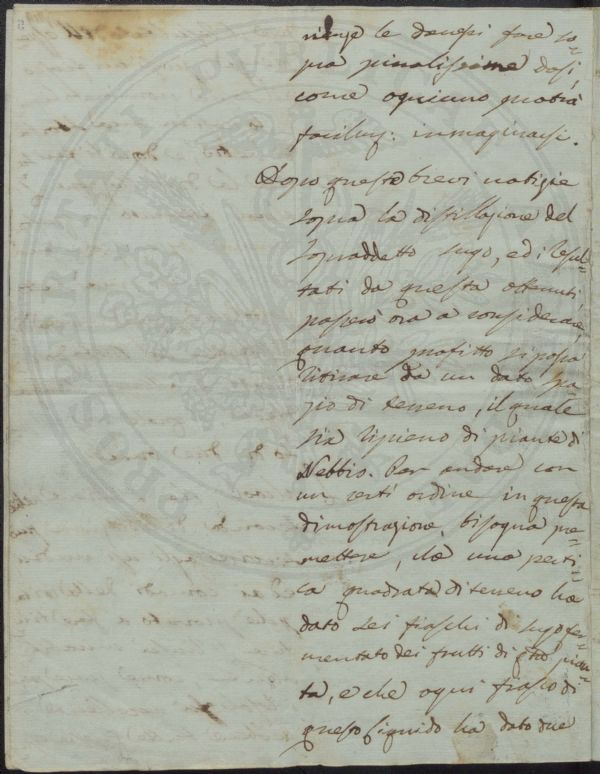 rienze le dovesi fare so=
pra picalissime dosi,
come ogniuno potrà
facilm: immaginarsi.
Dopo queste brevi notizie
sopra la distillazione del
sopraddetto sugo, ed i resul=
tati da questa ottenuti
passerò ora a considerare,
quanto profitto si possa
ritirare da un dato spa=
zio di terreno, il quale
sia ripieno di piante di
Nebbio. Per andare con
un certo ordine in questa
dimostrazione, bisogna pre=
mettere, che una perti=
ca quadrata di terreno ha
dato sei fiaschi di sugo fer=
mentato dei frutti di detta pian=
ta, e che ogni fiasco di
questo liquido ha dato due
PROSPERITATI PVBLICAE